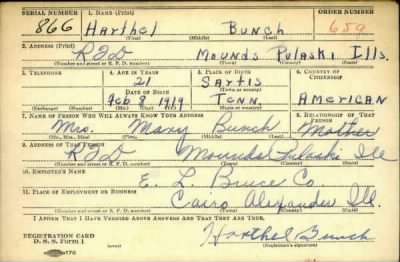 SERIAL NUMBER 1. NAME (Print) ORDER NUMBER
866 Harthel Bunch 659
(First) (Middle) (Last)
2. ADDRESS (Print)
RFD Mounds Pulaski Ills.
(Number and street or R. F. D. number) (Town) (County) (State)
3. TELEPHONE 4. AGE IN YEARS 5. PLACE OF BIRTH 6. COUNTRY OF CITIZENSHIP
21 Sartis
DATE OF BIRTH (Town or county)
Feb 8 1919 Tenn. American
(Exchange) (Number) (Mo.) (Day) (Yr.) (State or country)
7. NAME OF PERSON WHO WILL ALWAYS KNOW YOUR ADDRESS 8. RELATIONSHIP OF THAT PERSON
Mrs. Mary Bunch Mother
(Mr., Mrs., Miss) (First) (Middle) (Last)
9. ADDRESS OF THAT PERSON
RFD Mounds Pulaski Ill
(Number and street or R. F. D. number) (Town) (County) (State)
10. EMPLOYER'S NAME
E. L. Bruce Co.
11. PLACE OF EMPLOYMENT OR BUSINESS
Cairo Alexander Ill.
(Number and street or R. F. D. number) (Town) (County) (State)
I AFFIRM THAT I HAVE VERIFIED ABOVE ANSWERS AND THAT THEY ARE TRUE.
REGISTRATION CARD
D. S. S. Form 1 Harthel Bunch
(Registrant's signature)